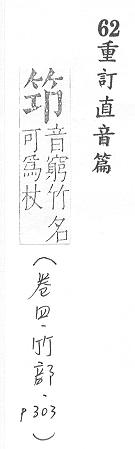 62重訂直音篇
笻
音窮竹名
可爲杖
（卷四·竹部·p303）